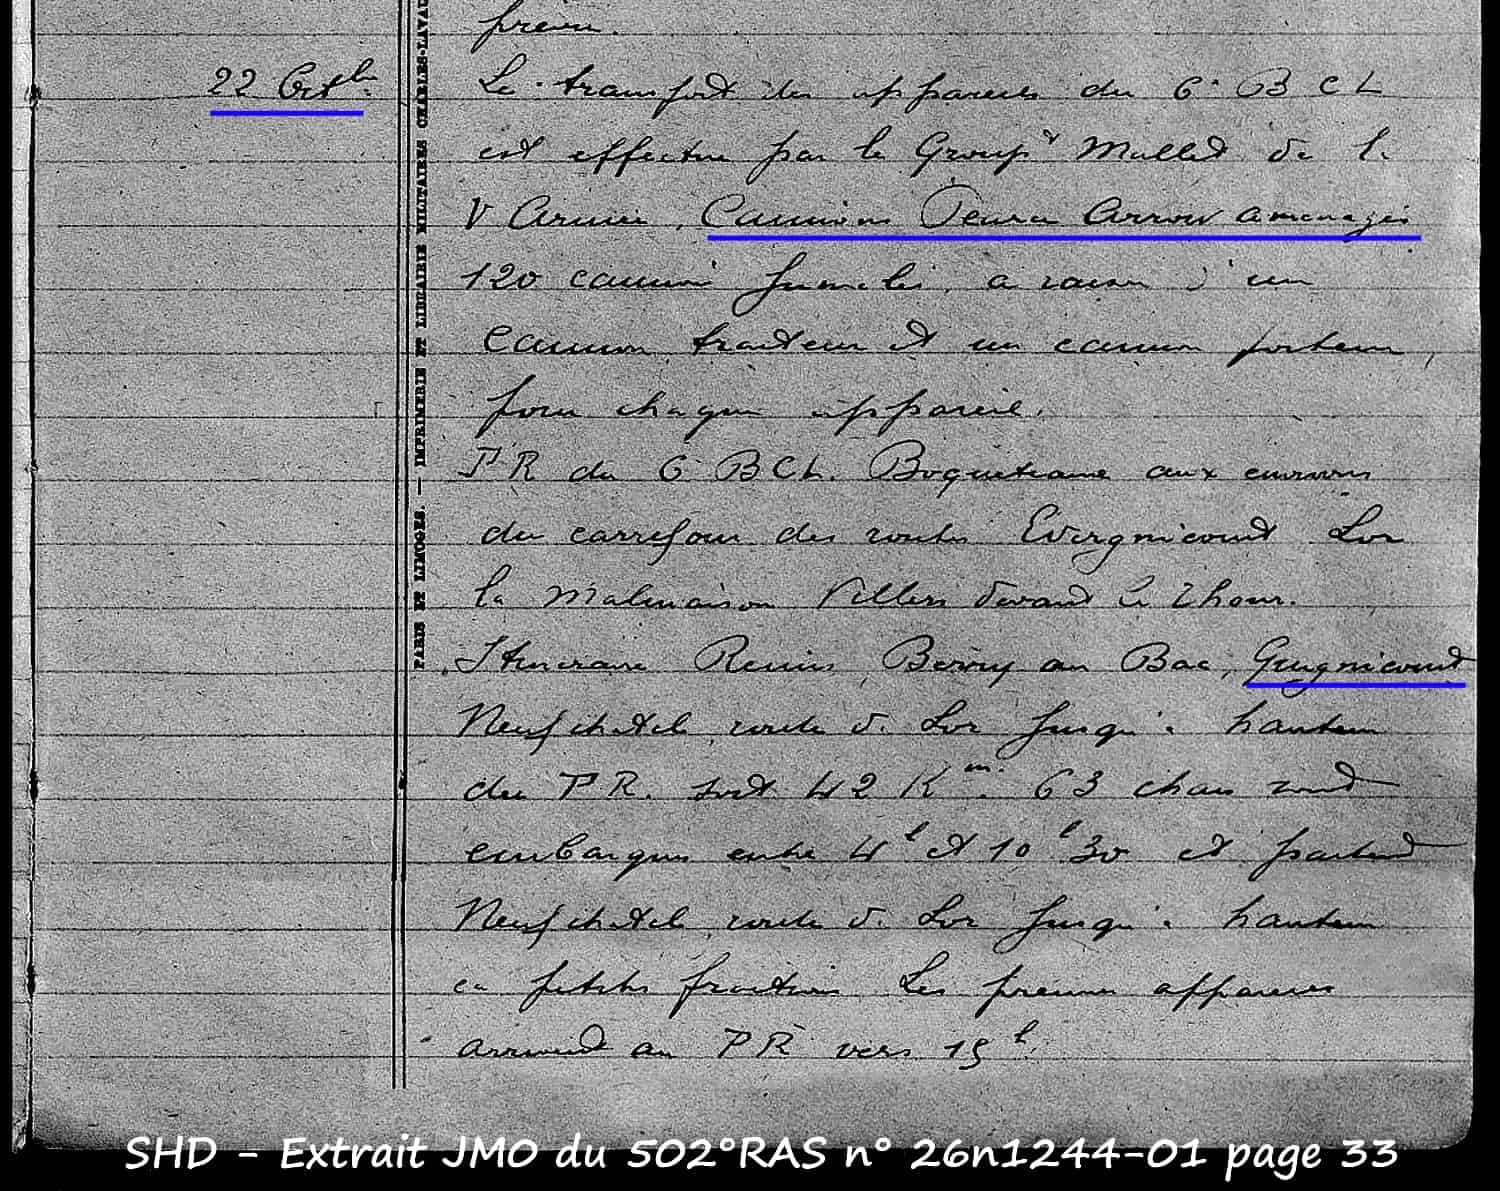 preve.
22 Octbre
Le transport des appareils du 6e B C L
est effectué par le Groupt Mallet de la
V Armée, Camions Peirce Arrow aménagés
120 camions jumelés, a raison d'un
camion tracteur et un camion porteur,
pour chaque appareil.
P R du 6 B C L. Boqueteaux aux environs
du carrefour des routes Evergnicourt Lor
la Malmaison Villers devant le Thour.
Itineraire Reims, Berry au Bac, Guignicourt
Neufchatel, route de Lor jusqu'à hauteur
du P R. soit 42 Km. 63 chars sont
embarqués entre 4h et 10h30 et partent
Neufchatel, route de Lor jusqu'à hauteur
en petites fractions Les premiers appareils
arrivent au P R vers 15h.
PARIS ET LIMOGES. — IMPRIMERIE ET LIBRAIRIE MILITAIRES CHARLES-LAVAU
SHD - Extrait JMO du 502°RAS n° 26n1244-01 page 33